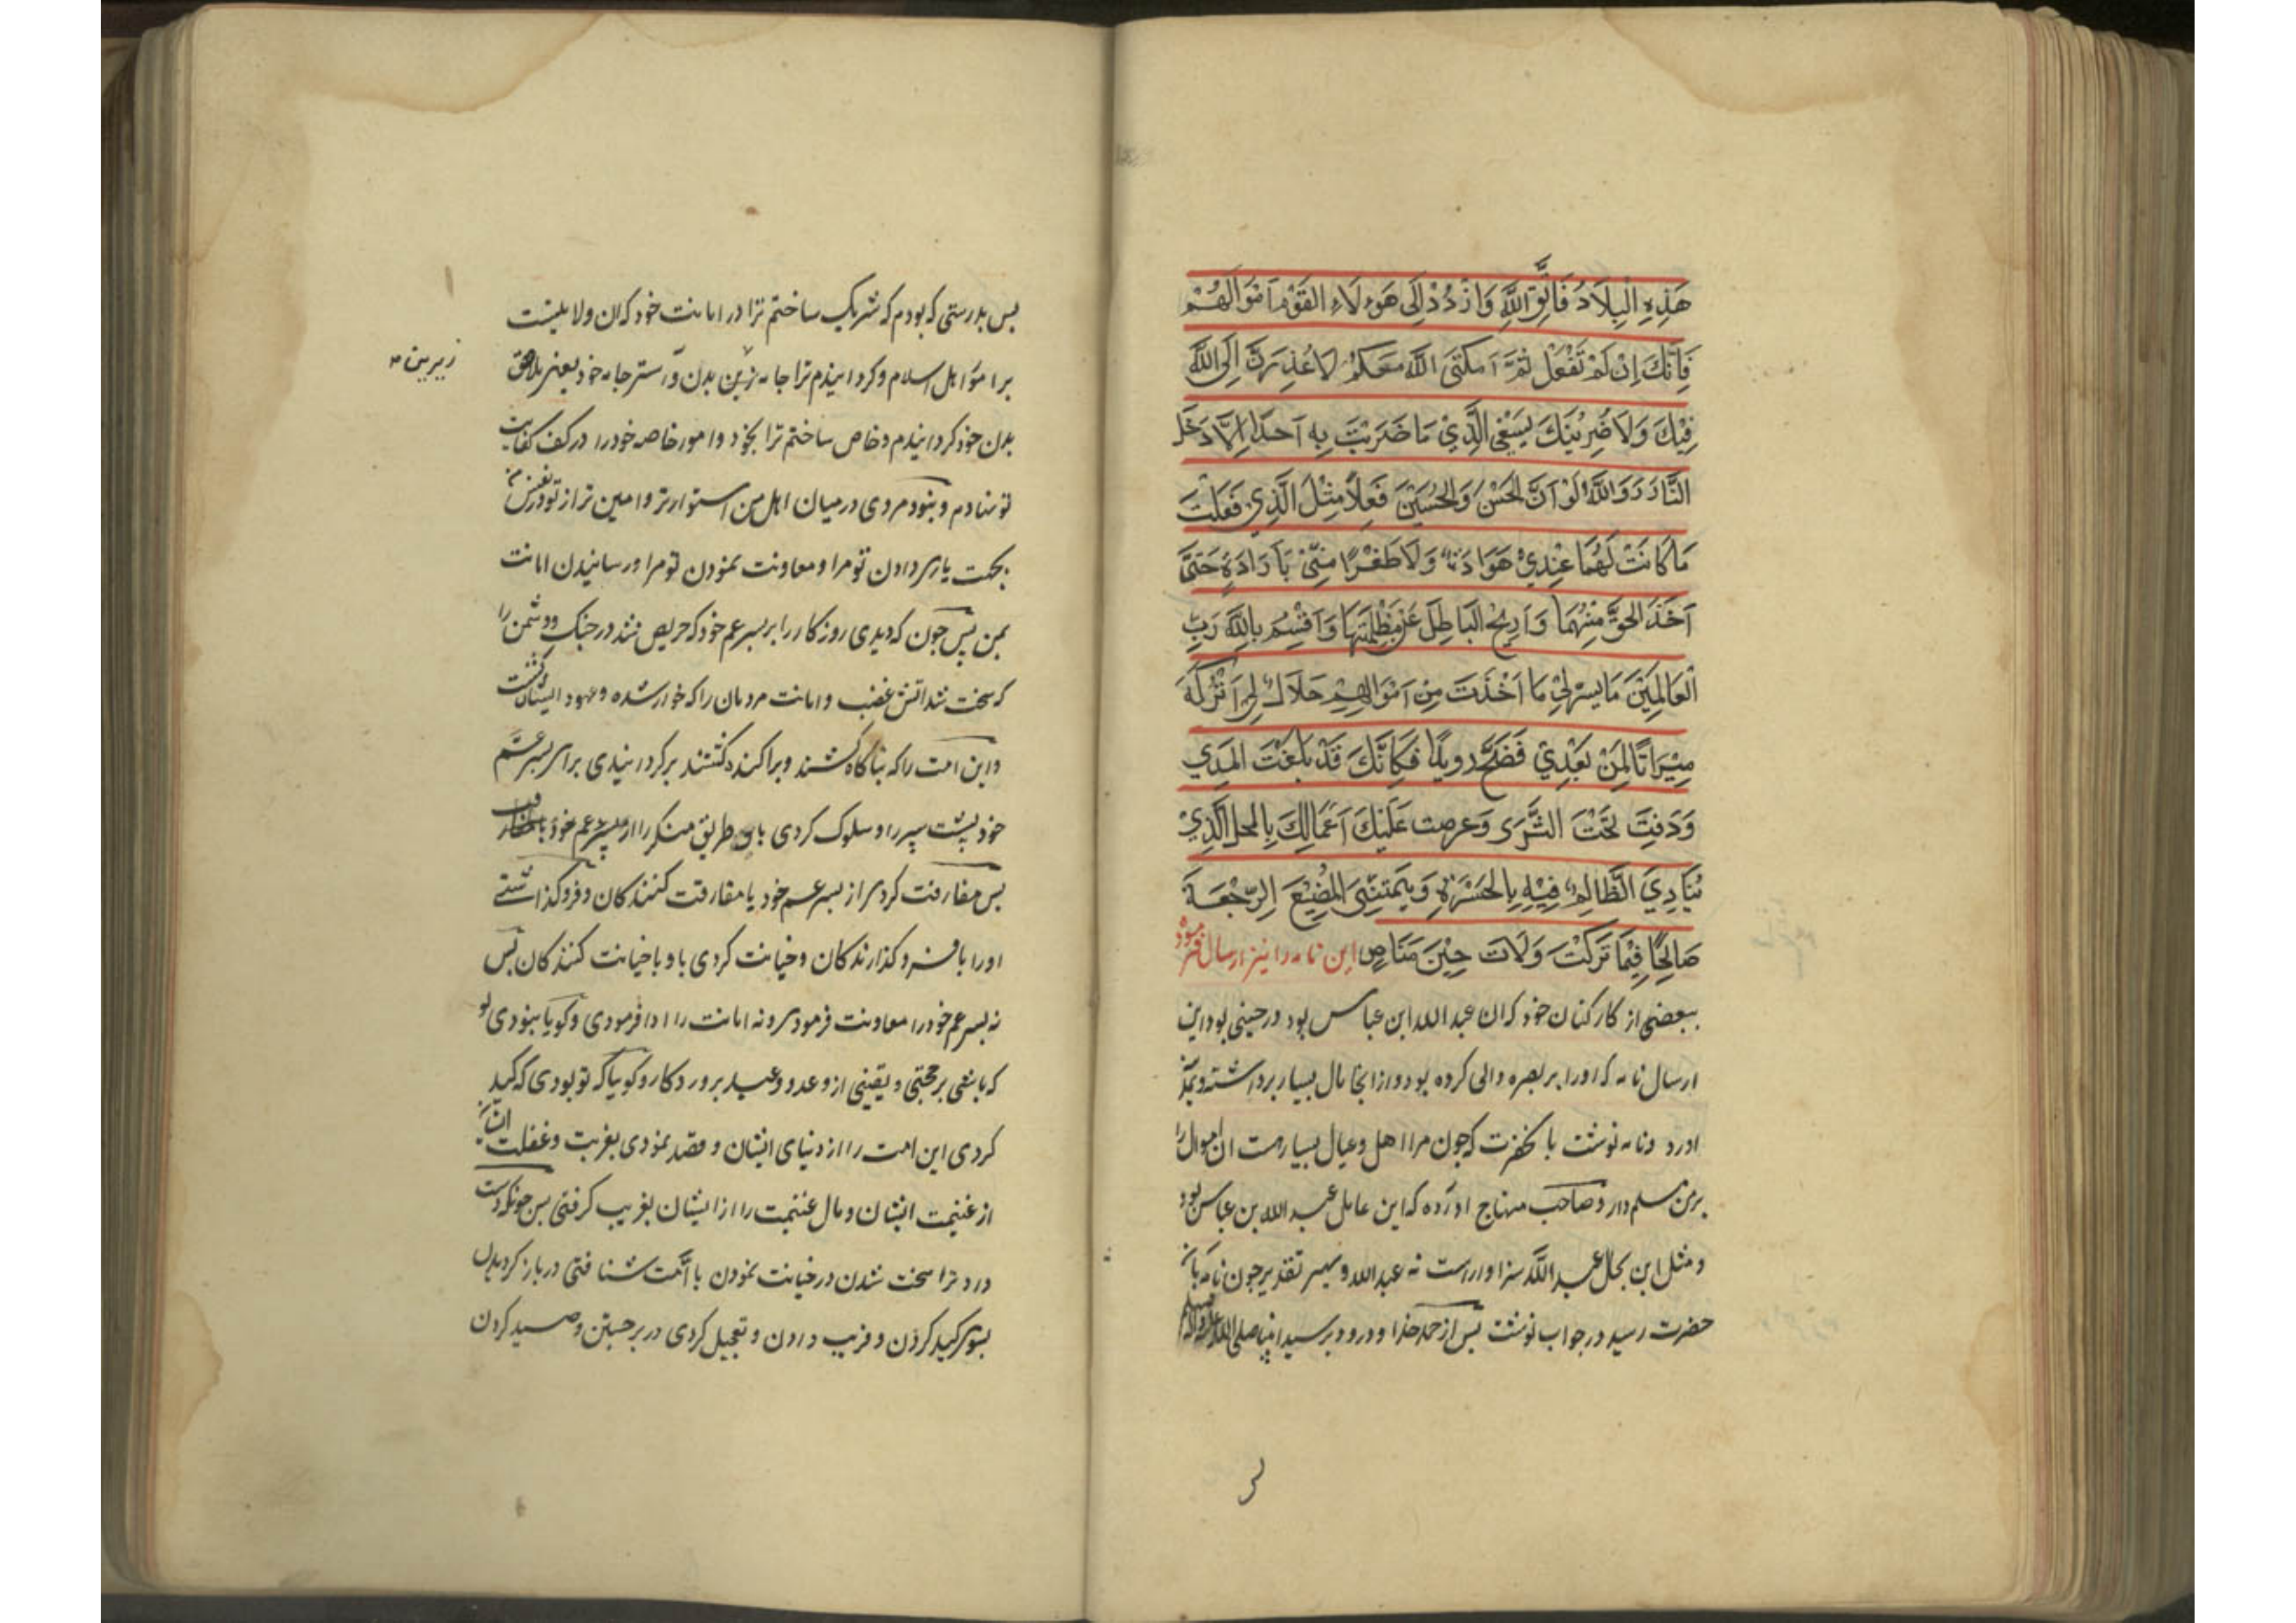 هَذِهِ الْبِلَادُ فَاتَّقِ اللَّهَ وَازْدُدْ اِلَی هَوءُلَاءِ القَوْمِ اَمْوَالَهُمْ
فَاِنَّكَ اِنْ لَمْ تَفْعَلْ ثُمَّ اَمْكَنَنِی اللَّهُ مَعَكُمْ لَاُعْذِرَنَّ اِلَی اللَّهِ
فِيْكَ وَلَاضْرِبَنَّكَ بِسَيْفِی الَّذِيْ مَا ضَرَبْتُ بِهِ اَحَدًا اِلَّا دَخَلَ
النَّارَ وَ وَاللَّهُ لَوْ اَنَّ الحَسَنَ وَالْحُسَيْنَ فَعَلَا مِثْلَ الَّذِي فَعَلْتَ
مَا كَانَتْ لَهُمَا عِنْدِيْ هَوَادَةٌ وَلَا ظَفَرًا مِنِّیْ بِاَرَادَةٍ حَتَّی
اَخَذَ الحَقَّ مِنْهُمَا وَ اَرِيْحَ الْبَاطِلَ عَنْ مَظْلِمَتِهَا وَ اُقْسِمُ بِاللَّهِ رَبِّ
الْعَالَمِيْنَ مَا يَسُرُّنِیْ مَا اَخَذْتَ مِنْ اَمْوَالِهِمْ حَلَالٌ لِیْ اَتْرُكُهُ
مِيْرَاثًا لِمَنْ بَعْدِيْ فَضَحِّ رويدًا فَكَاَنَّكَ قَدْ بَلَغْتَ المَدَي
وَدُفِنْتَ تَحْتَ الثَّرَی وَ عرضت عَلَيْكَ اَعْمَالُكَ بِالمحل الَّذِيْ
يُنَادِيَ الظَّالِمُ فِيْهِ بِالحَسْرَةِ وَ يَتَمَنَّی المُضِيْعَ الرَّجْعَةَ
صَالِحًا فِيْمَا تَرَكْتَ وَلَاتَ حِيْنَ مَنَاصٍ این نامه را نیز ارسال فرمود
ببعضی از کارکنان خود که ان عبد الله ابن عباس بود در حینی بود این
ارسال نامه که او را بر بصره والی کرده بود و از انجا مال بسیار برداشته و بمکه
اورد و نامه نوشت با نحضرت که چون مرا اهل و عیال بسیارست ان اموال را
بر من مسلم دار و صاحب منهاج اورده که این عامل عبید الله بن عباس بود
و مثل این بحال عبید الله سزاوار است نه عبد الله و بهر تقدیر چون نامه بان
حضرت رسید در جواب نوشت پس از حمد خدا و درود بر سید انبیا صلی الله علیه و اله
پس بدرستی که بودم که شریک ساختم ترا در امانت خود که ان ولایتست
بر اموال اهل اسلام و کردانیدم ترا جامه زیرین بدن و استر جامه خود یعنی ملاصق
زیرین
بدن خود کردانیدم و خاص ساختم ترا بخود و امور خاصه خود را در کف کفایت
تو نهادم و نبود مردی در میان اهل من استوارتر و امین تر از تو در نفس من
بجهت یاری دادن تو مرا و معاونت نمودن تو مرا و رسانیدن امانت
بمن پس چون که دیدی روزکار را بر پسر عم خود که حریص شد در جنک و دشمن را
که سخت شد اتش غضب و امانت مردمان را که خوار شده و عهود ایشان کشت
و این امت را که تباه کار شدند و پراکنده کشتند برکردانیدی برای پسر عم
خود پشت سپر را و سلوک کردی باو طریق منکر را از پسر عم خود
پس مفارقت کردی از پسر عم خود با مفارقت کنندکان و فروکذاشتی
او را با فرو کذارندکان و خیانت کردی باو با خیانت کنندکان پس
نه پسر عم خود را معاونت فرمودی و نه امانت را ادا فرمودی و کویا نبودی تو
که باشی بر حجتی و یقینی از وعد و وعید پروردکار و کویا که تو بودی که کید
کردی این امت را از دنیای ایشان و قصد نمودی بغربت و غفلت ایشان
از غنیمت ایشان و مال غنیمت را از ایشان بفریب کرفتی پس چونکه دست
داد ترا سخت شدن در خیانت نمودن با امت شتافتی در باز کردیدن
بسوی کید کردن و فریب دادن و تعجیل کردی در برجستن و صید کردن